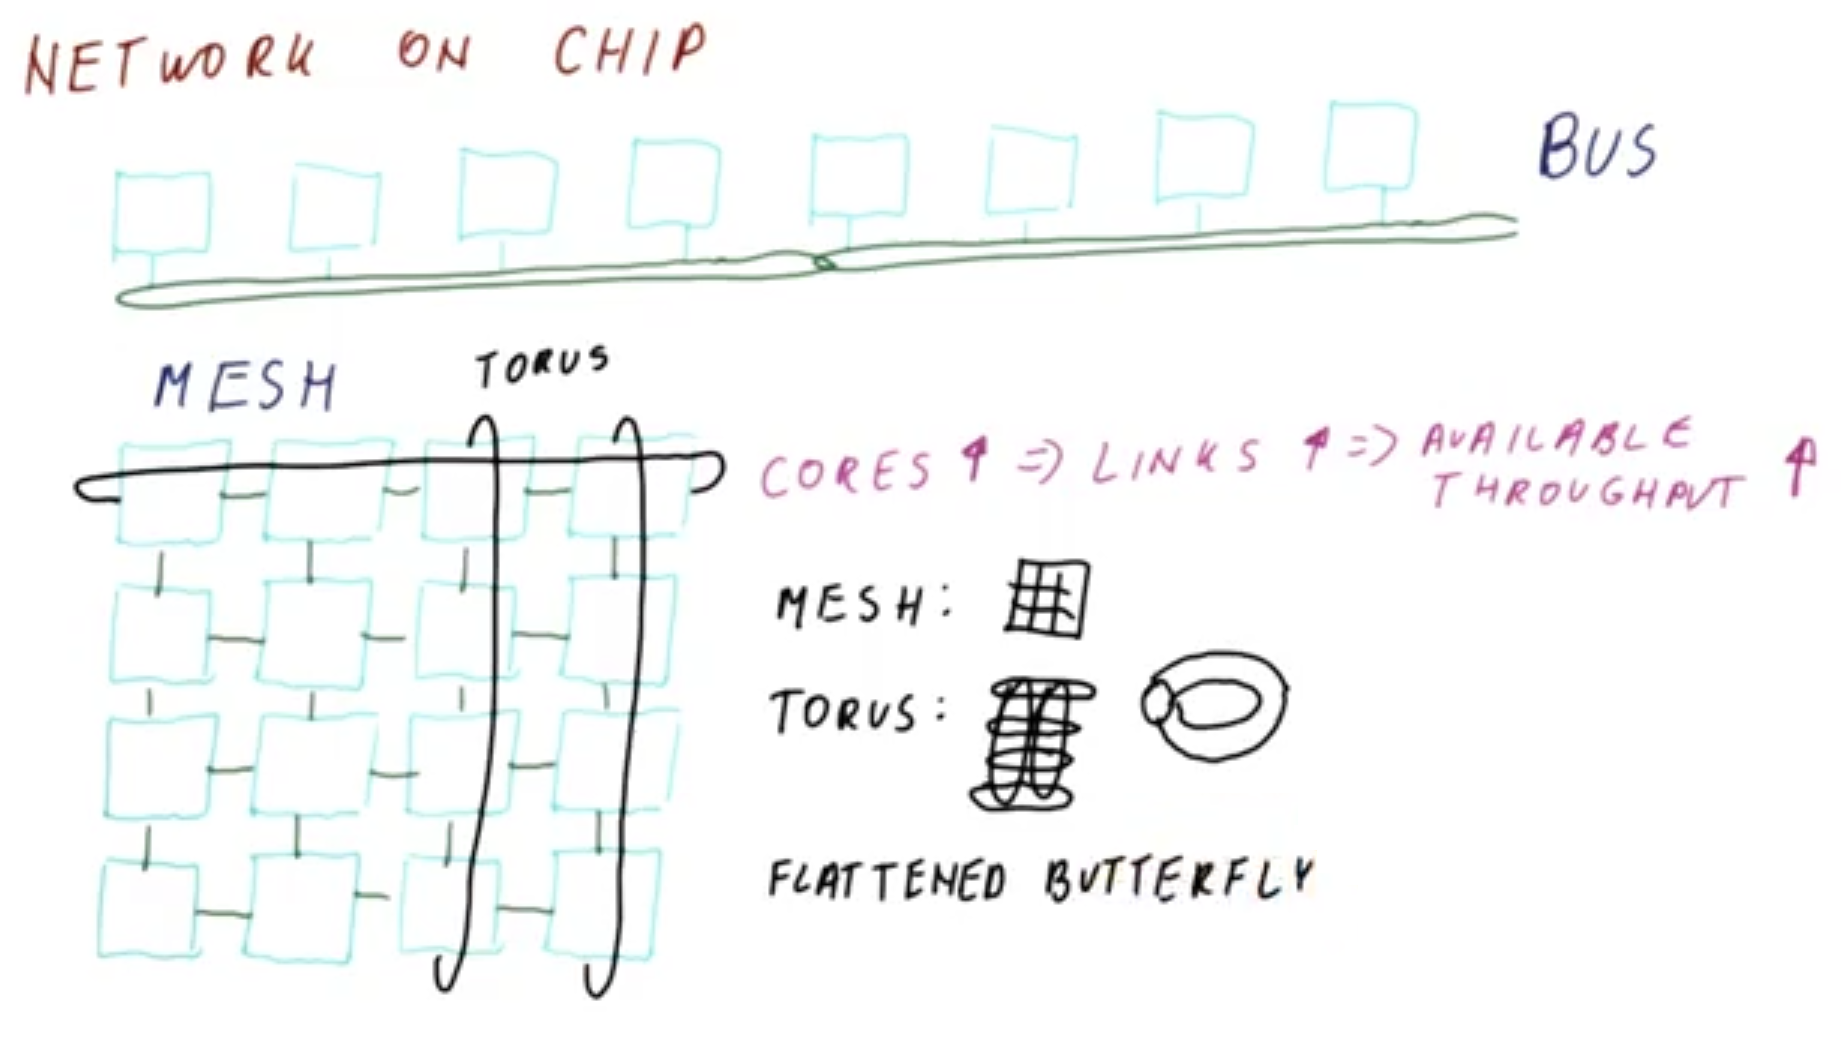 NETWORK ON CHIP
BUS
MESH
TORUS
CORES ↑ => LINKS ↑ => AVAILABLE
THROUGHPUT ↑
MESH:
TORUS:
FLATTENED BUTTERFLY